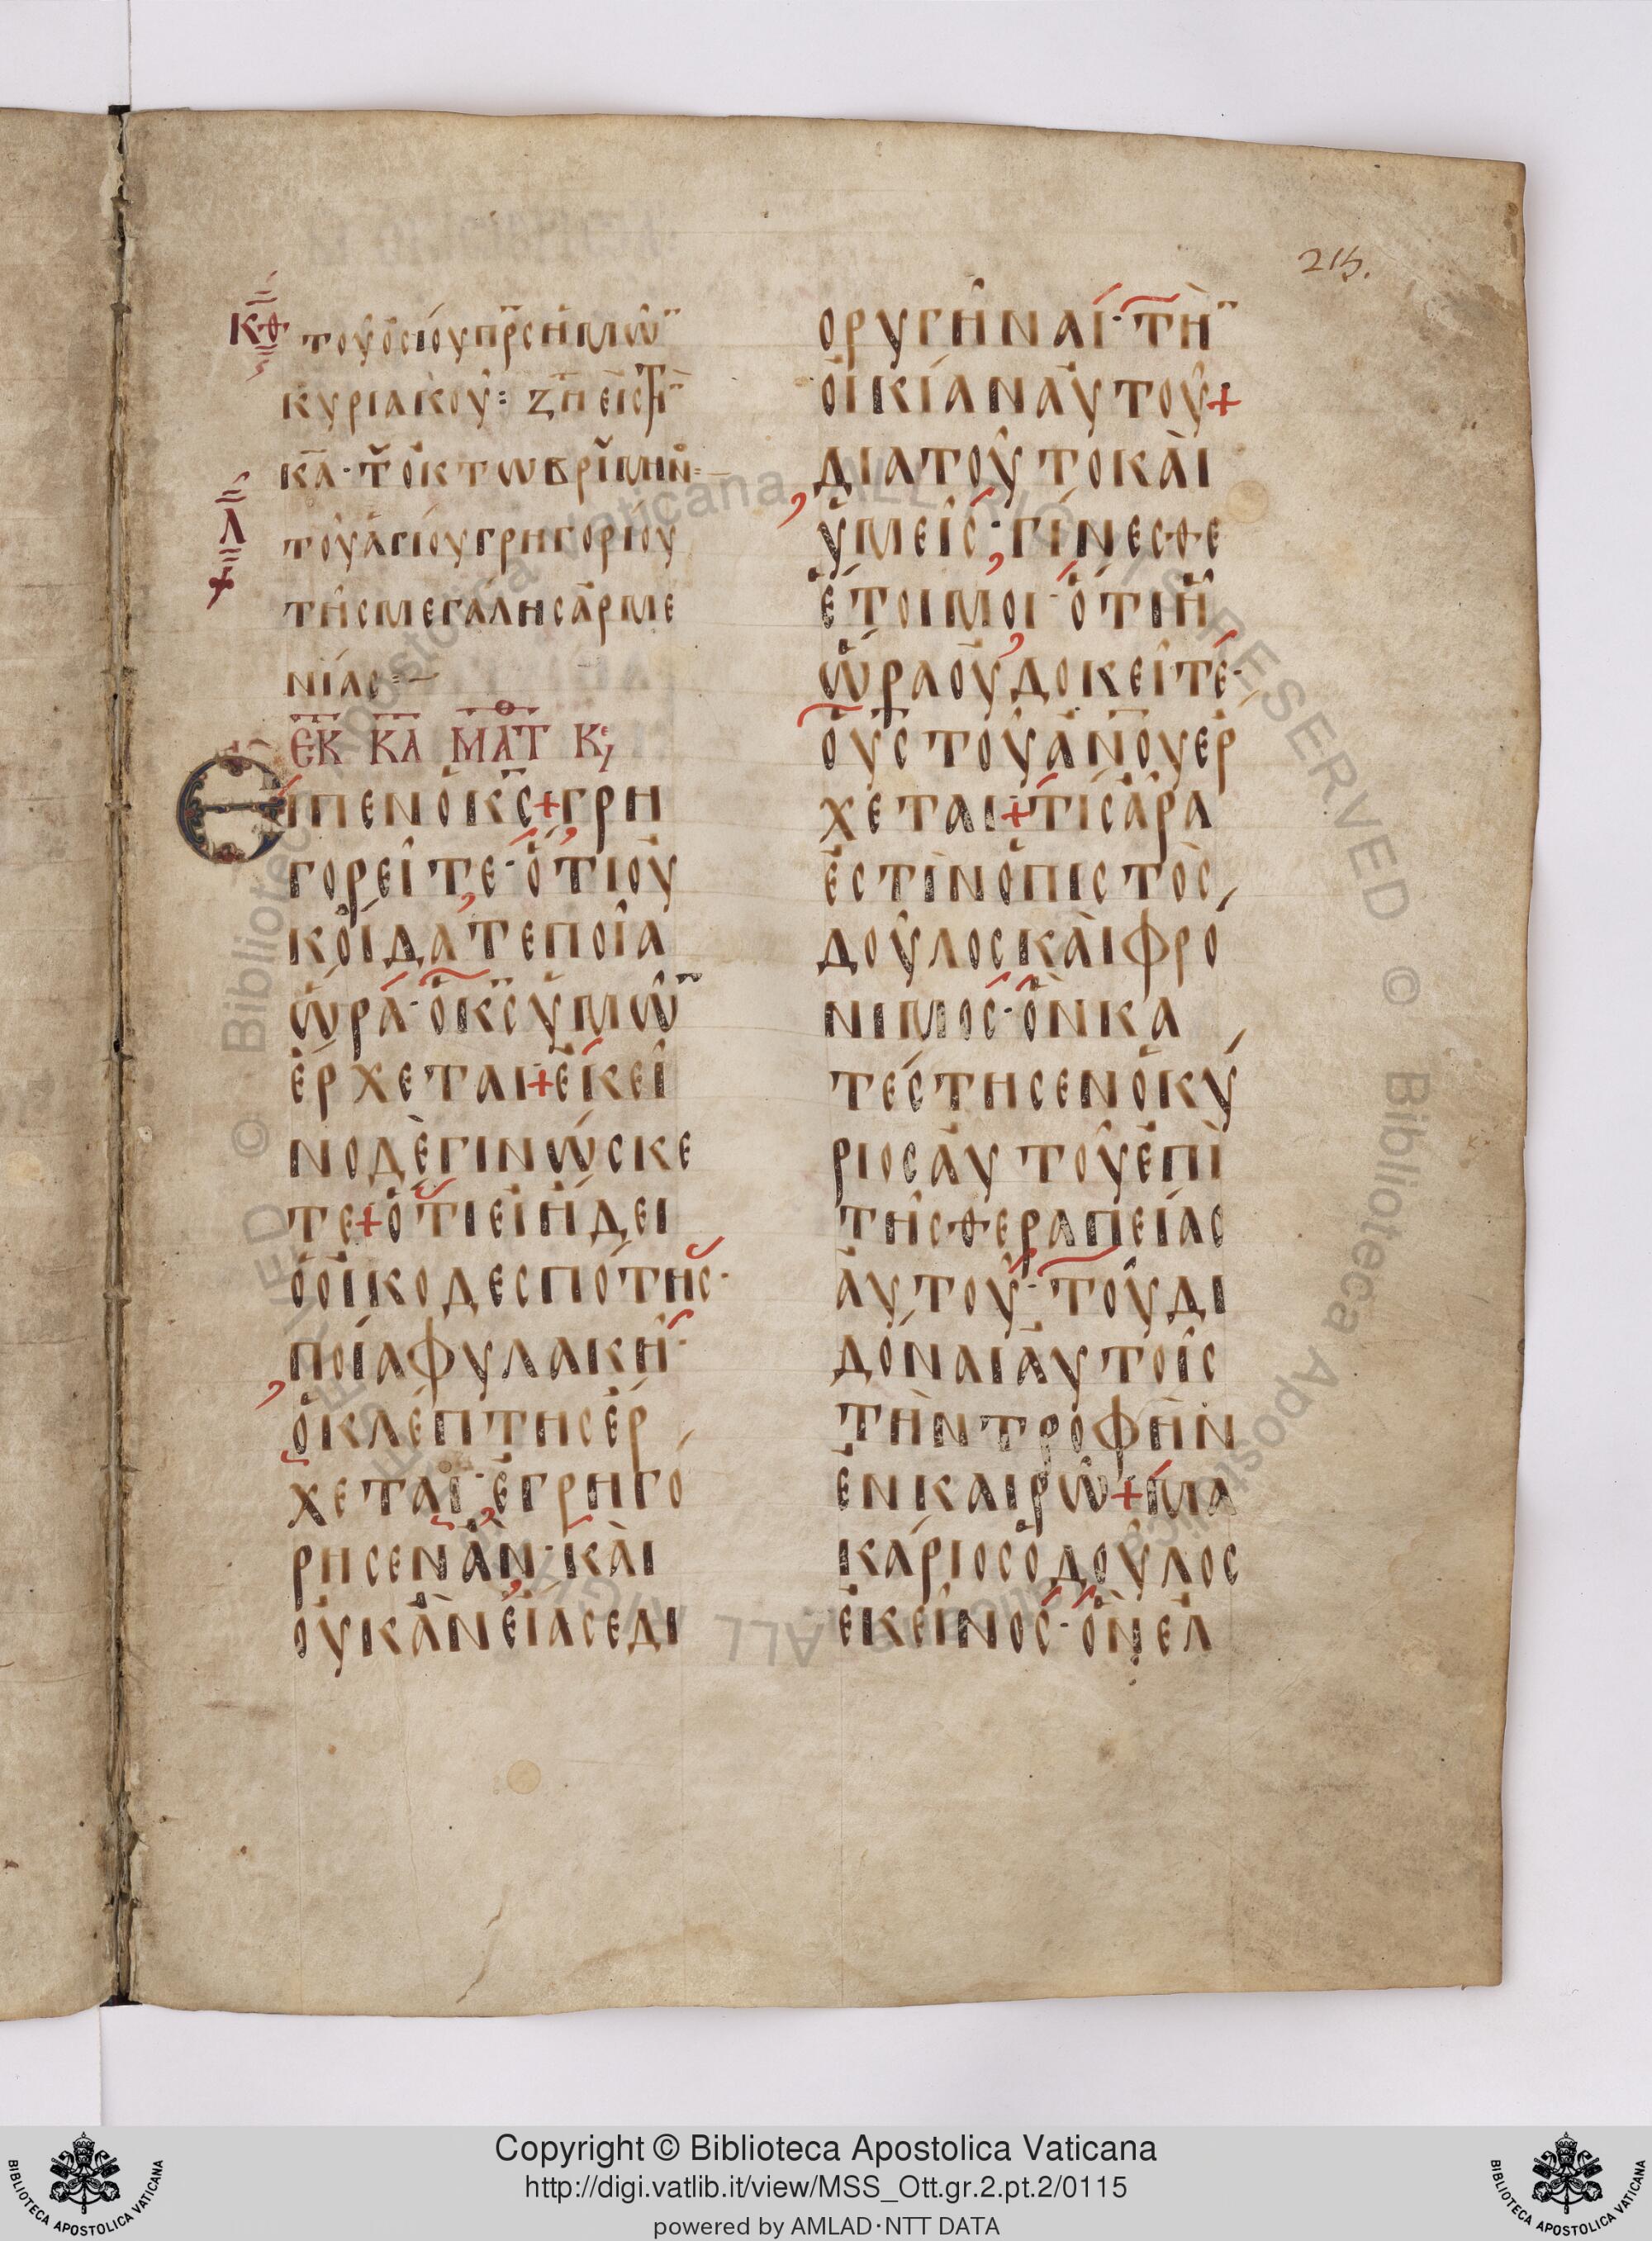 215.
ΚΘ ΤΟΥ ὉΣΊΟΥ Π̅Ρ̅Σ ἩΜΩ̑ͫ
ΚΥΡΙΑΚΟΥ̑: ΖΗ ΕἸΣ Τ
ΚΑ̅· Τ ὈΚΤΩΒΡΙ ΜΗΝ
Λ ΤΟΥ̑ ἉΓΊΟΥ ΓΡΗΓΟΡΊΟΥ
ΤΗ̑Σ ΜΕΓΆΛΗΣ ἈΡΜΕ
ΝΊΑΣ
ΕΚ ΚΑ ΜΑΤΘ Κ;
ΕἾΠΕΝ Ὁ Κ̅Σ̅+ΓΡΗ
ΓΟΡΕΙ̑ΤΕ· ὍΤΙ ΟΥ̓
Κ ΟἼΔΑΤΕ ΠΟΊΑ
ὭΡΑ· Ὁ Κ̅Σ̅ ὙΜΩ̑
ἜΡΧΕΤΑΙ+ἘΚΕΙ̑
ΝΟ ΔῈ ΓΙΝΏΣΚΕ
ΤΕ+ὍΤΙ ΕἸ ἬΔΕΙ
Ὁ ΟἸΚΟΔΕΣΠΌΤΗΣ·
ΠΟΊΑ ΦΥΛΑΚΗ̑·
Ὁ ΚΛΈΠΤΗΣ ἜΡ
ΧΕΤΑΙ· ἘΓΡΗΓΌ
ΡΗΣΕΝ ἊΝ· ΚᾺΙ
ΟΥΚ ἊΝ ἘΊΑΣΕ ΔΙ
ΟΡΥΓΗ̑ΝΑΙ· ΤῊ
ΟἸΚΊΑΝ ἈΥΤΟΥ̑+
ΔΙΑΤΟΥ̑ΤΟ ΚᾺΙ
ὙΜΕΙ̑Σ· ΓΊΝΕΣΘΕ
ἝΤΟΙΜΟΙ· ὍΤΙ Ἧ
ὭΡΑ ΟΥ̓ ΔΟΚΕΙ̑ΤΕ·
Ὁ Υ̅Σ̅ ΤΟΥ̑ Α̅Ν̅Ο̅Υ̅ ΕΡ
ΧΕΤΑΙ+ΤΊΣ ἎΡΑ
ἘΣΤῚΝ Ὁ ΠΙΣΤῸΣ
ΔΟΥ̑ΛΟΣ ΚᾺΙ ΦΡΌ
ΝΙΜΟΣ· ὋΝ ΚΑ
ΤΈΣΤΗΣΕΝ Ὁ ΚΎ
ΡΙΟΣ ἈΥΤΟΥ̑ ἘΠῚ
ΤΗ̑Σ ΘΕΡΑΠΕΊΑΣ
ἈΥΤΟΥ̑· ΤΟΥ̑ ΔΙ
ΔΌΝΑΙ ἈΥΤΟΙ̑Σ
ΤῊΝ ΤΡΟΦῊΝ
ἘΝ ΚΑΙΡΩ̑+ΜΑ
ΚΆΡΙΟΣ Ὁ ΔΟΥ̑ΛΟΣ
ἘΚΕΙ̑ΝΟΣ· ὋΝ ἘΛ
Copyright © Biblioteca Apostolica Vaticana
http://digi.vatlib.it/view/MSS_Ott.gr.2.pt.2/0115
powered by AMLAD·NTT DATA
BIBLIOTECA APOSTOLICA VATICANA
BIBLIOTECA APOSTOLICA VATICANA